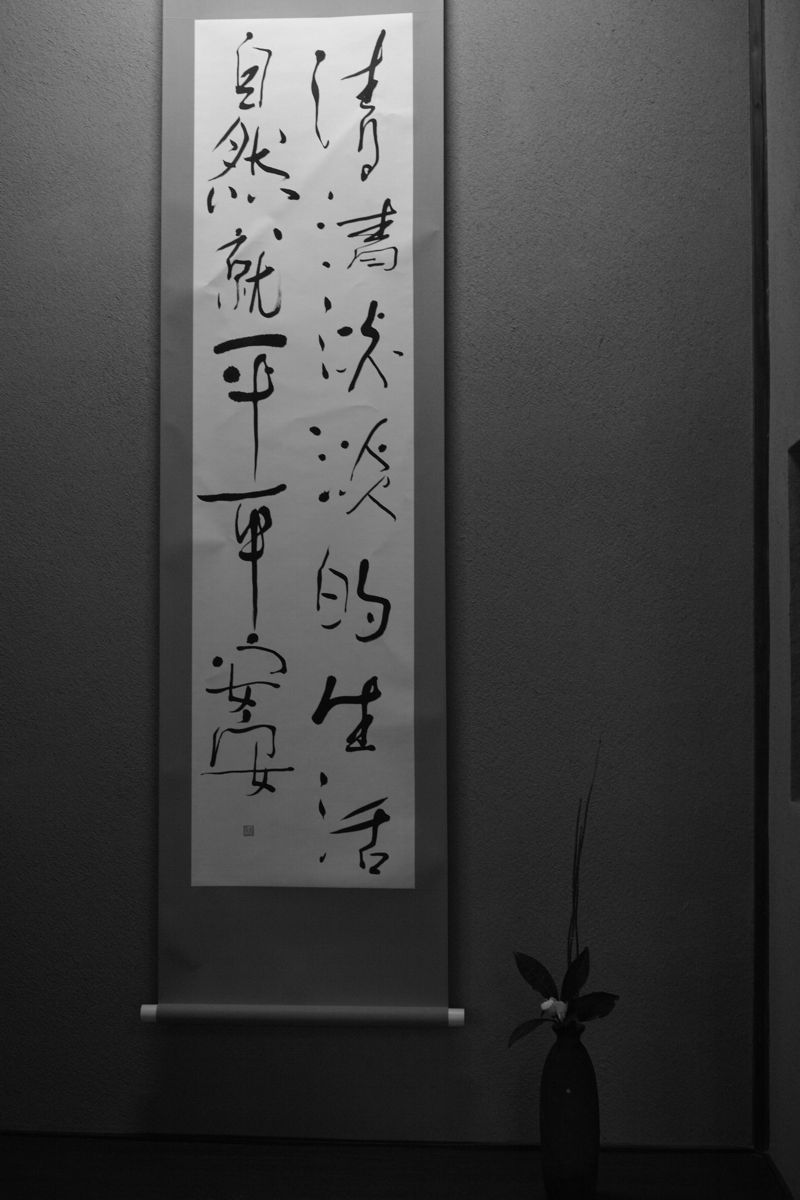 清清淡淡的生活
自然就平平安安